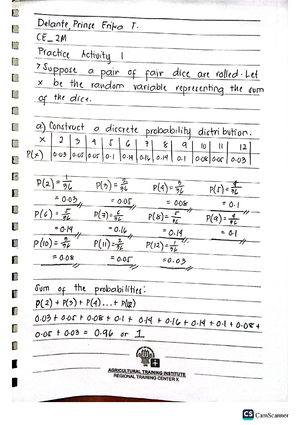 Delante, Prince Enjoa T.
CE_2M
Practice Activity 1
> Suppose a pair of fair dice are rolled. Let
x be the random variable representing the sum
of the dice.
a) Construct a discrete probability distribution.
x 2 3 4 5 6 7 8 9 10 11 12
P(x) 0.03 0.05 0.08 0.1 0.14 0.16 0.14 0.1 0.08 0.05 0.03
P(2) = 1/36 P(3) = 2/36 P(4) = 3/36 P(5) = 4/36
= 0.03 = 0.05 = 0.08 = 0.1
P(6) = 5/36 P(7) = 6/36 P(8) = 5/36 P(9) = 4/36
= 0.14 = 0.16 = 0.14 = 0.1
P(10) = 3/36 P(11) = 2/36 P(12) = 1/36
= 0.08 = 0.05 = 0.03
Sum of the probabilities:
P(2) + P(3) + P(4) ... + P(12)
0.03 + 0.05 + 0.08 + 0.1 + 0.14 + 0.16 + 0.14 + 0.1 + 0.08 +
0.05 + 0.03 = 0.96 or 1
AGRICULTURAL TRAINING INSTITUTE
REGIONAL TRAINING CENTER X
CS CamScanner